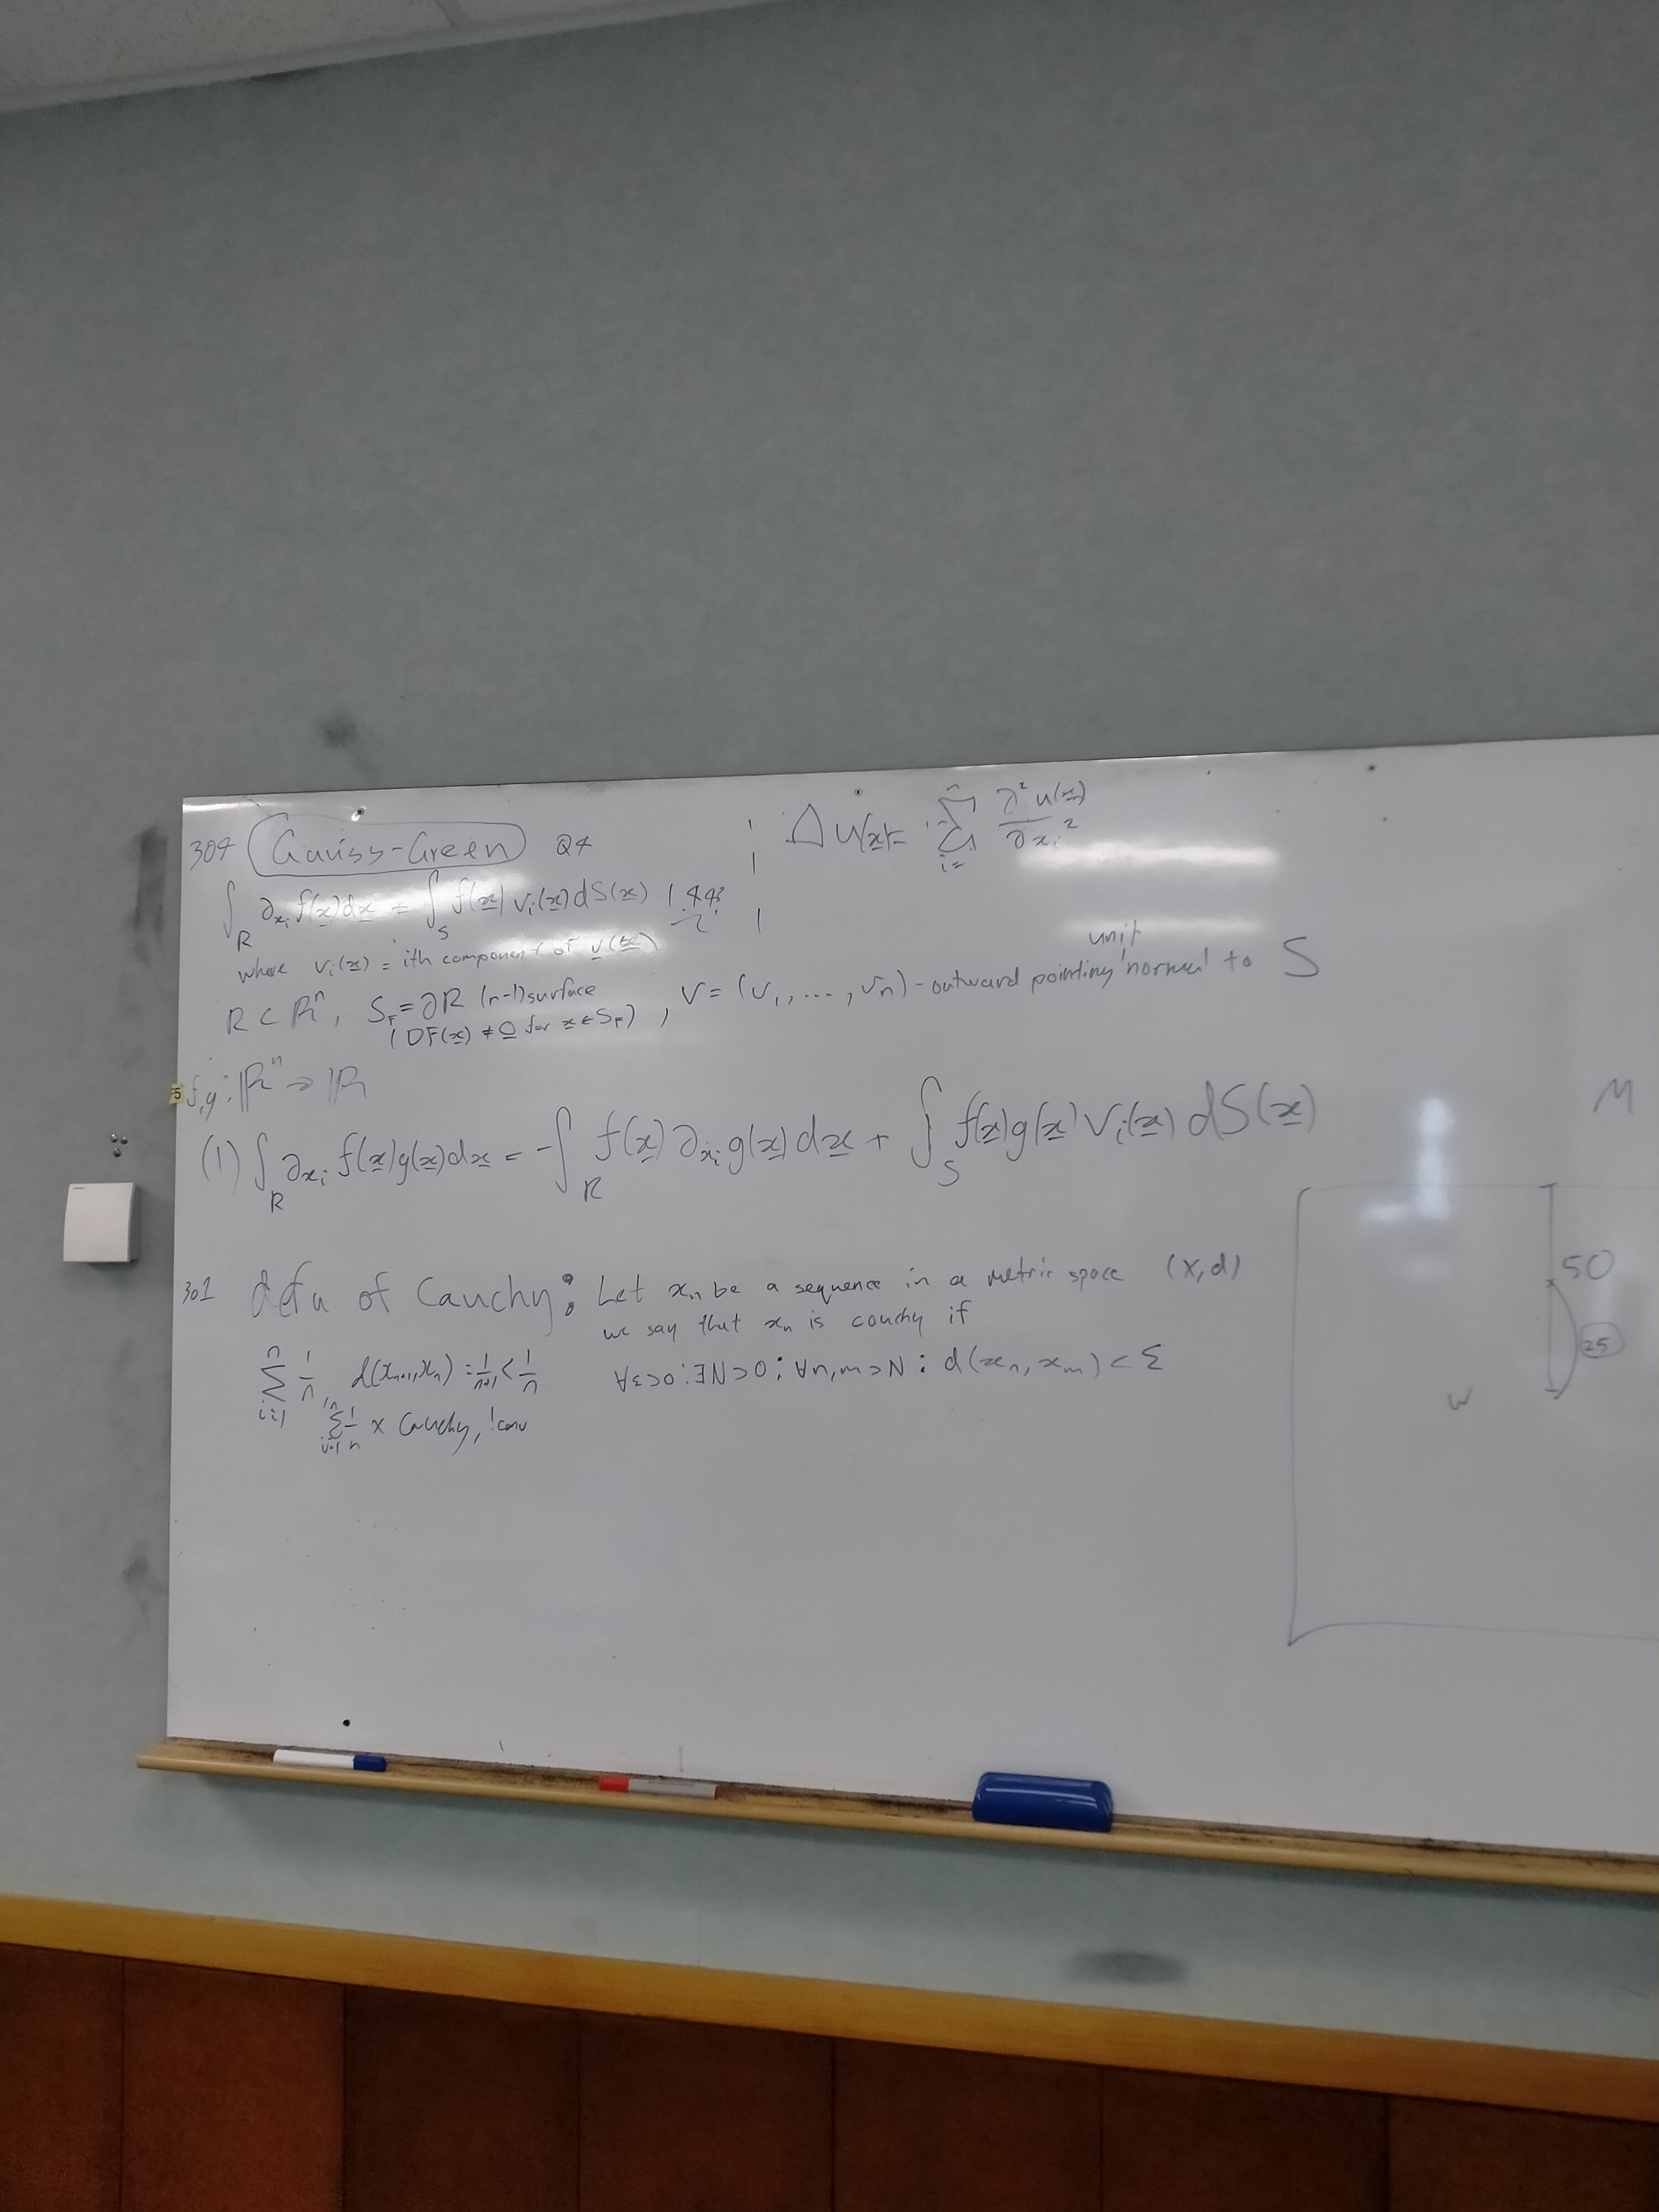 304 Gauss-Green Q4
Δu(x) = ∑ i= n ∂²u(x)/∂xᵢ²
∫_R ∂_{xᵢ} f(x)dx = ∫_S f(x) vᵢ(x)dS(x)
where vᵢ(x) = ith component of v(x)
unit
R ⊂ ℝⁿ, S_F = ∂R (n-1) surface , v = (v₁, ..., vₙ) - outward pointing normal to S
(DF(x) ≠ 0 for x ∈ S_F)
f,g: ℝⁿ → ℝ
(1) ∫_R ∂_{xᵢ} f(x)g(x)dx = -∫_R f(x) ∂_{xᵢ} g(x)dx + ∫_S f(x)g(x) vᵢ(x) dS(x)
301 defn of Cauchy: Let xₙ be a sequence in a metric space (X,d)
we say that xₙ is couchy if
∀ε>0: ∃N>0: ∀n,m>N: d(xₙ, xₘ) < Σ
∑ i=1 n 1/n, d(xₙ₊₁,xₙ) = 1/n+1 < 1/n
∑ i=1 n 1/n x Cauchy, !conv
M
50
25
W